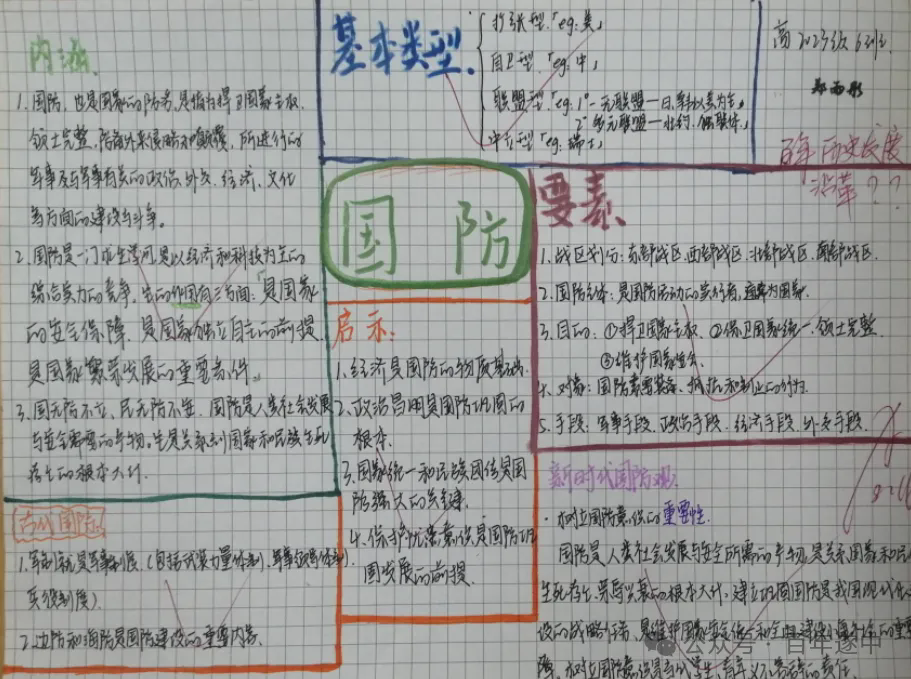 内涵
1.国防,也是国家的防务,是指为捍卫国家主权、
领土完整,防御外来侵略和颠覆,所进行的
军事及与军事有关的政治、外交、经济、文化
等方面的建设与斗争。
2.国防是一门求生学问,是以经济和科技为主的
综合实力的竞争。它的作用有三方面:是国家
的安全保障,是国家独立自主的前提,
是国家繁荣发展的重要条件。
3.国无防不立,民无防不安。国防是人类社会发展
与安全需要的产物。它是关系到国家和民族生死
存亡的根本大计
古代国防
1.军制就是军事制度。(包括武装力量体制、军事领导体制、
兵役制度)
2.边防和海防是国防建设的重要内容
基本类型
扩张型「eg:美」
自卫型「eg:中」
联盟型「eg:1°一元联盟—日、韩以美为主」
2°多元联盟—北约、独联体」
中立型「eg:瑞士」
国 防
启示:
1.经济是国防的物质基础
2.政治昌明是国防巩固的
根本
3.国家统一和民族团结是国
防强大的关键
4.保持忧患意识是国防巩
固发展的前提
高2023级6班
百年历史发展
沿革??
要素
1.战区划分:东部战区、西部战区、北部战区、南部战区
2.国防主体:是国防活动的实行者,通常为国家
3.目的:①捍卫国家主权 ②保卫国家统一、领土完整
③维护国家安全
4.对象:国防需要装备、抵抗和制止的行为
5.手段:军事手段、政治手段、经济手段、外交手段
新时代国防观
·树立国防意识的重要性
国防是人类社会发展与安全所需的产物,是关系国家和民
生死存亡、荣辱兴衰的根本大计。建立巩固国防是我国现代化
设的战略任务,是维护国家安全统一和全面建设小康社会的重要
障。树立国防意识是当代学生、青年义不容辞的责任
公众号·百年遂中